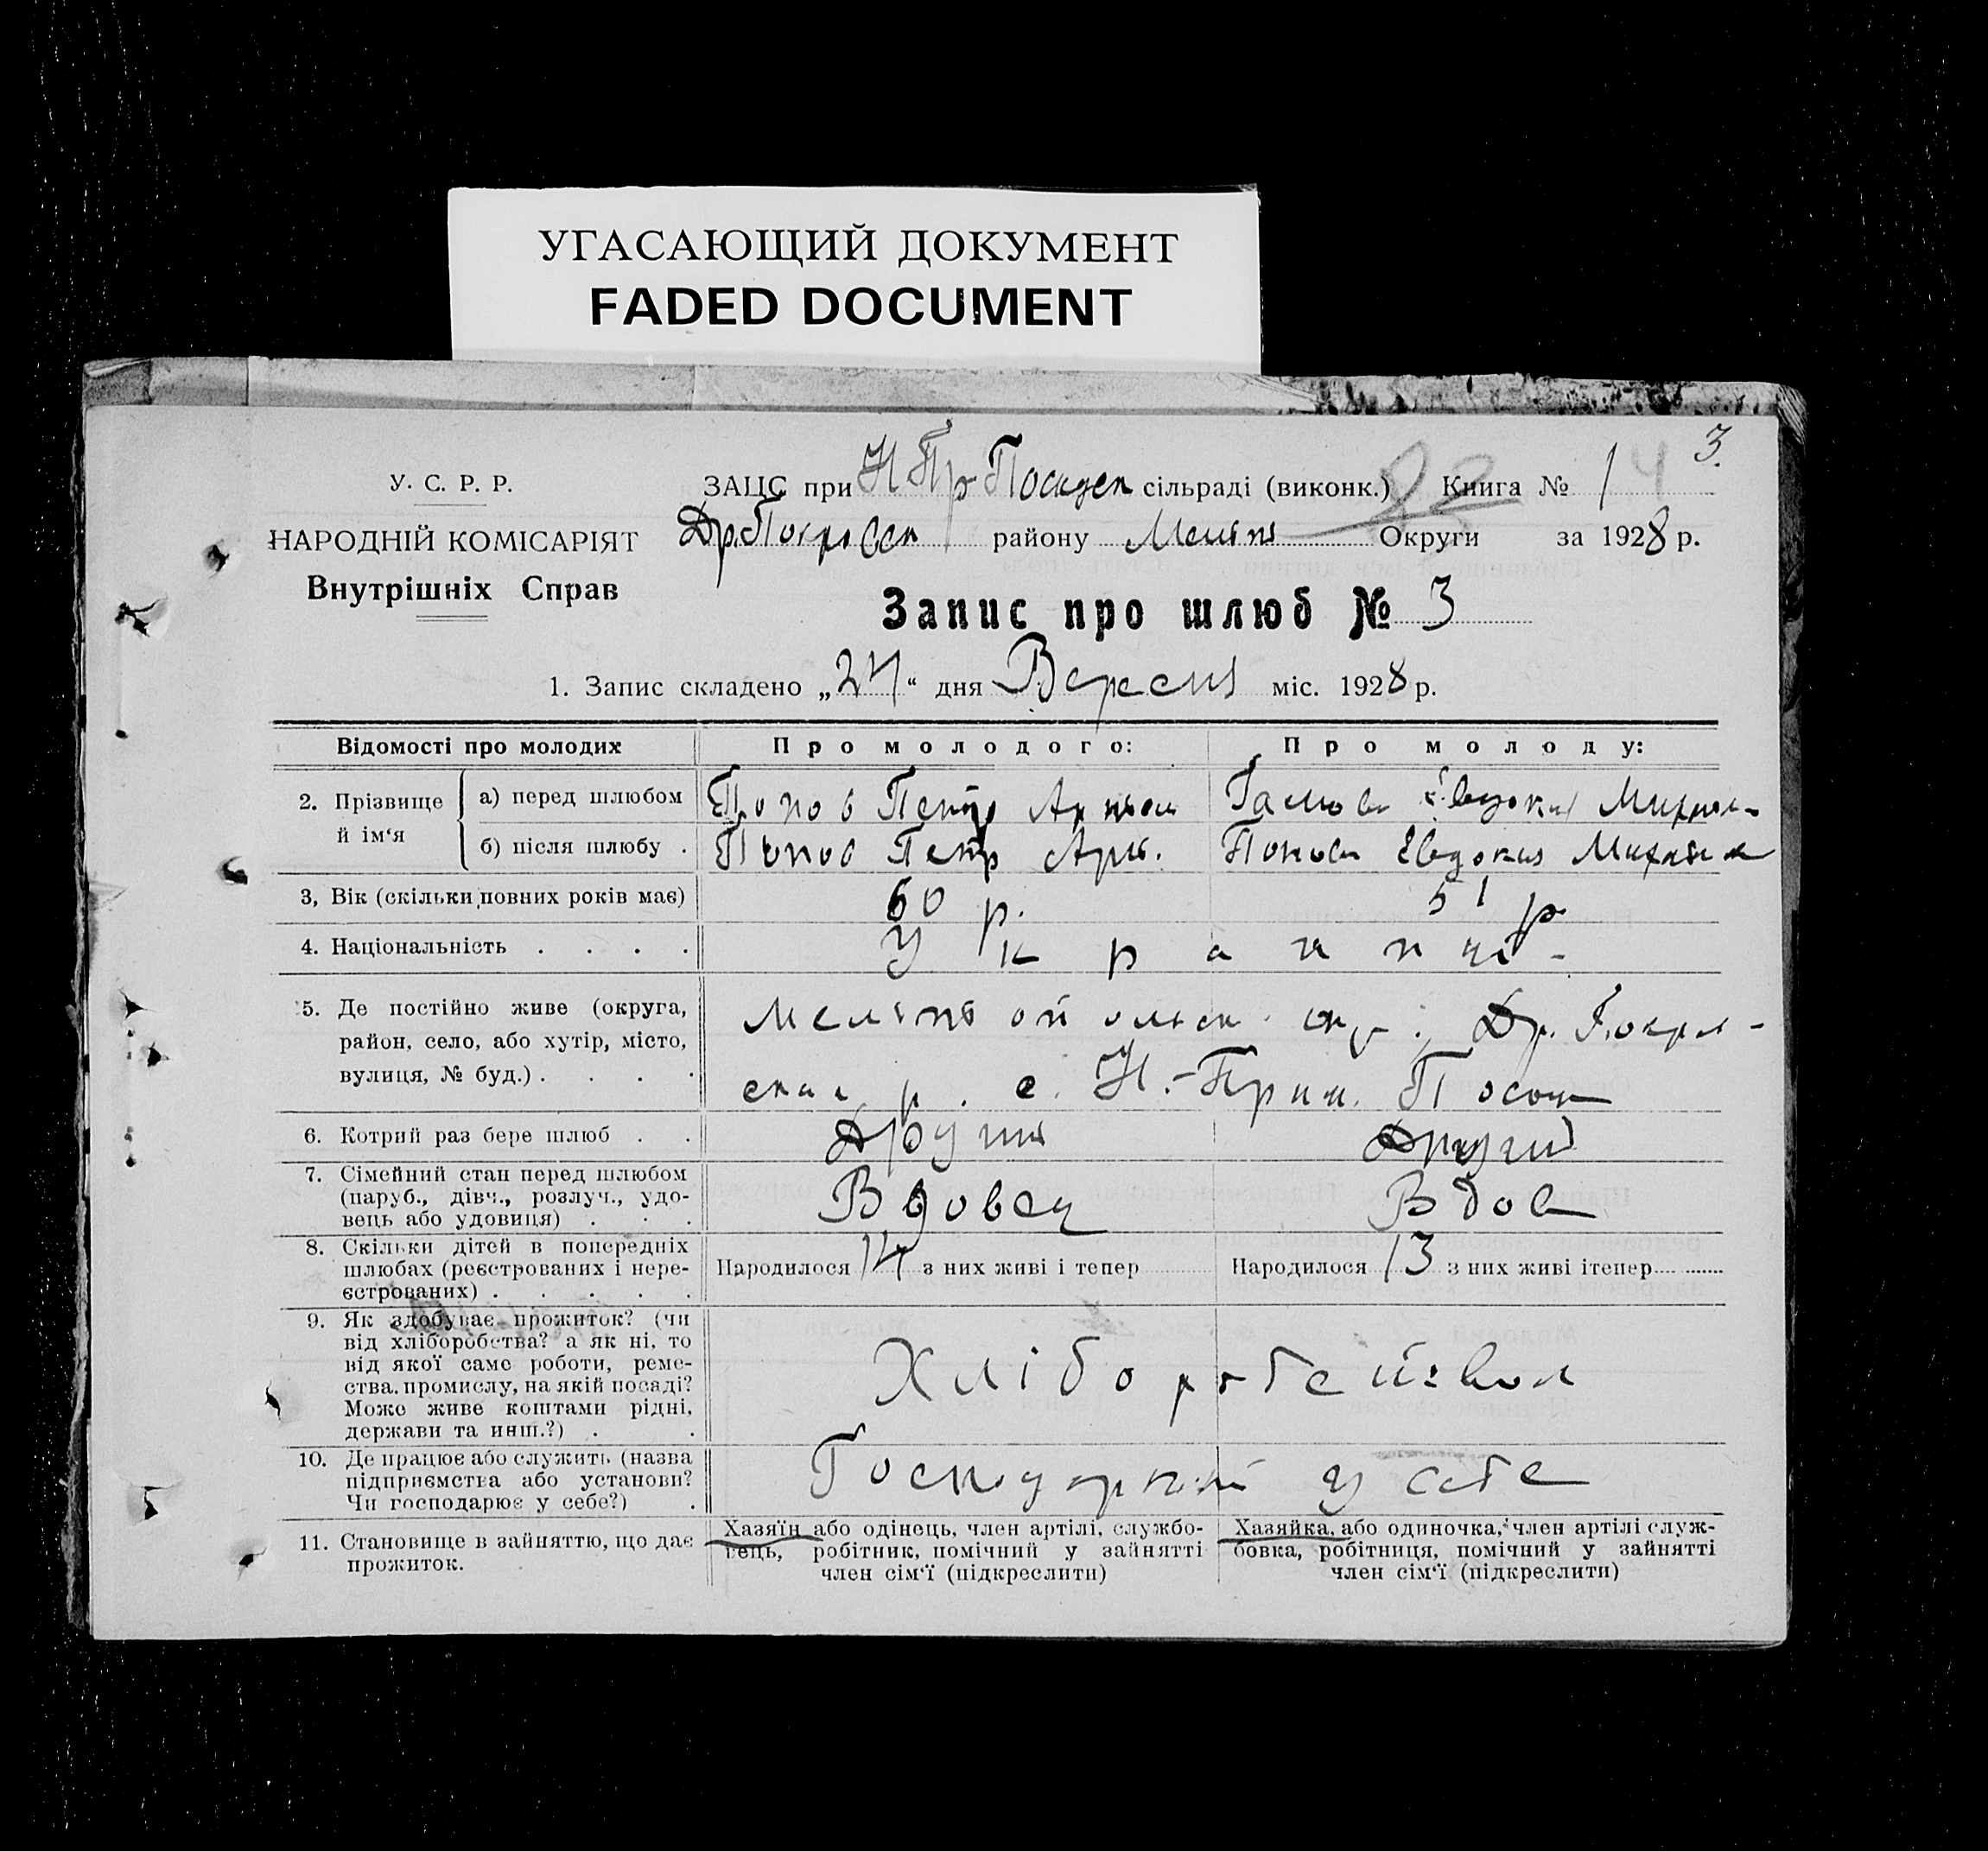 УГАСАЮЩИЙ ДОКУМЕНТ
FADED DOCUMENT
3.
У. С. Р. Р.
ЗАЦС при Н Пр Посаден сільраді (виконк.) Книга № 1 4
НАРОДНІЙ КОМІСАРІЯТ
Др. Покровск району Меліт Округи за 1928 р.
Внутрішніх Справ
Запис про шлюб № 3
1. Запис складено „24“ дня Вересня міс. 1928 р.
Відомості про молодих Про молодого: Про молоду:
2. Прізвище й ім‘я
а) перед шлюбом Попов Петр Евдокия Михаил
б) після шлюбу . Попов Петр Попова Евдокия Михайл
3, Вік (скільки повних років має) 60 р. 51 р
4. Національність . . . . Украинці -
5. Де постійно живе (округа, район, село, або хутір, місто, вулиця, № буд.) . . . .
Мелітопольск окр. Др. Покров-
ский р. с. Н.-Прим. Посад
6. Котрий раз бере шлюб . . Другий Другий
7. Сімейний стан перед шлюбом
(паруб., дівч., розлуч., удо-
вець або удовиця) . . . Вдовец Вдова
8. Скільки дітей в попередніх
шлюбах (реєстрованих і нере-
єстрованих) . . . . . Народилося 14 з них живі і тепер Народилося 13 з них живі ітепер
9. Як здобуває прожиток? (чи
від хліборобства? а як ні, то
від якої саме роботи, реме-
ства, промислу, на якій посаді?
Може живе коштами рідні,
держави та инш.?) . .
Хлібороб
10. Де працює або служить (назва
підприємства або установи?
Чи господарює у себе?) .
у себе
11. Становище в зайняттю, що дає
прожиток.
Хазяїн або одінець, член артілі, службо-
вець, робітник, помічний у зайнятті
член сім‘ї (підкреслити)
Хазяйка, або одиночка, член артілі служ-
бовка, робітниця, помічний у зайнятті
член сім‘ї (підкреслити)